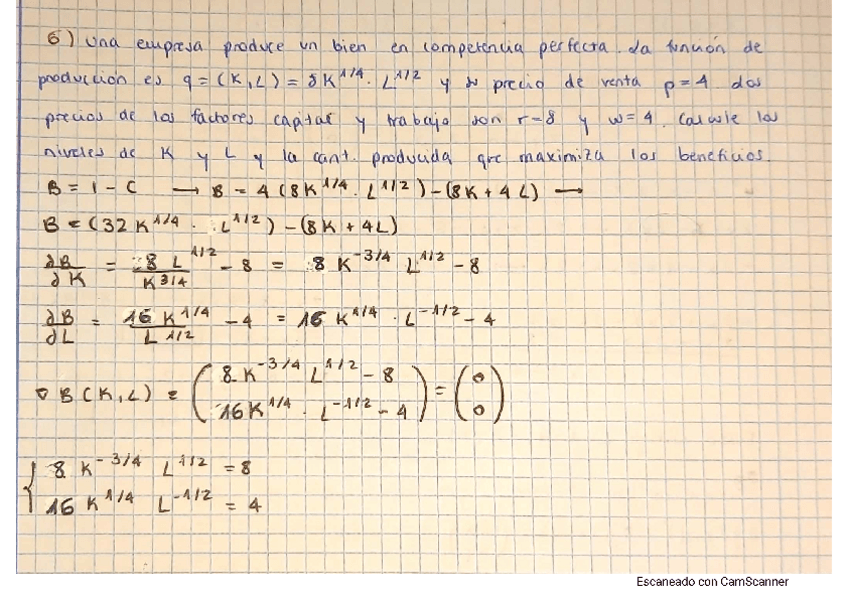 6) Una empresa produce un bien en competencia perfecta. La función de
producción es q = (K, L) = 8K^1/4 · L^1/2 y su precio de venta p = 4 dos
precios de los factores capital y trabajo son r = 8 y w = 4. Calcule los
niveles de K y L y la cant. producida que maximiza los beneficios.
B = I - C → B = 4 (8K^1/4 · L^1/2) - (8K + 4L) →
B = (32 K^1/4 · L^1/2) - (8K + 4L)
∂B/∂K = 8 L^1/2 / K^3/4 - 8 = 8 K^-3/4 L^1/2 - 8
∂B/∂L = 16 K^1/4 / L^1/2 - 4 = 16 K^1/4 · L^-1/2 - 4
∇ B (K, L) = ( 8 K^-3/4 L^1/2 - 8 ; 16 K^1/4 · L^-1/2 - 4 ) = ( 0 ; 0 )
{ 8 K^-3/4 L^1/2 = 8
16 K^1/4 L^-1/2 = 4
Escaneado con CamScanner